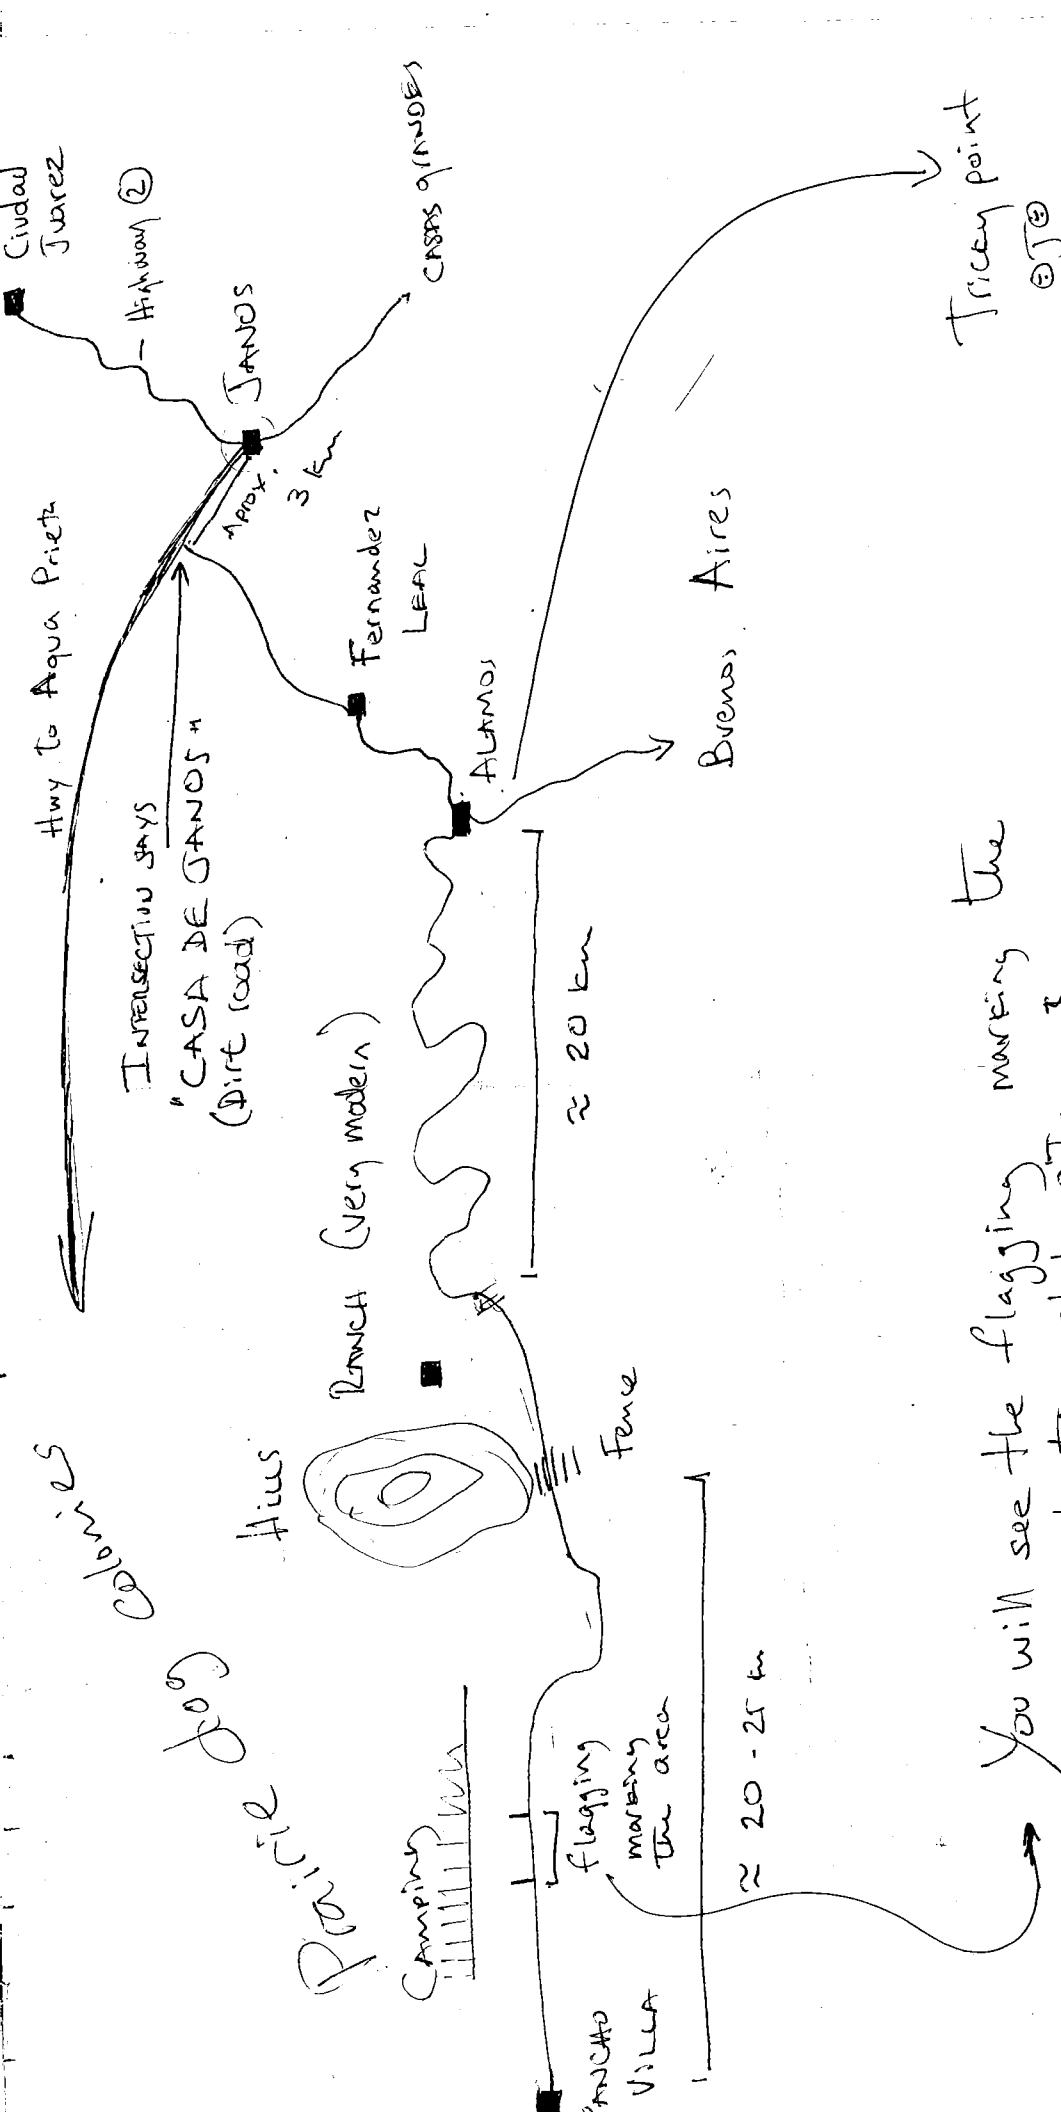 Ciudad
Juarez
Highway 2
JANOS
CASAS GRANDES
Hwy to Agua Prieta
Aprox.
3 km
INTERSECTION SAYS
"CASA DE JANOS"
(Dirt road)
Fernandez
LEAL
ALAMOS
Buenos Aires
Tricky point
≈ 20 km
RANCH (very modern)
Hills
Fence
Prairie dog colonies
Camping
flagging
marking
the area
≈ 20-25 km
ANCHO
VILLA
You will see the flagging marking the